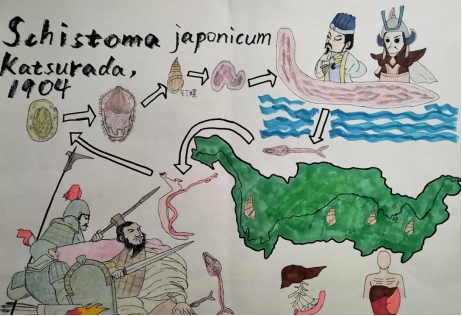 Schistoma japonicum
Katsurada,
1904
钉螺